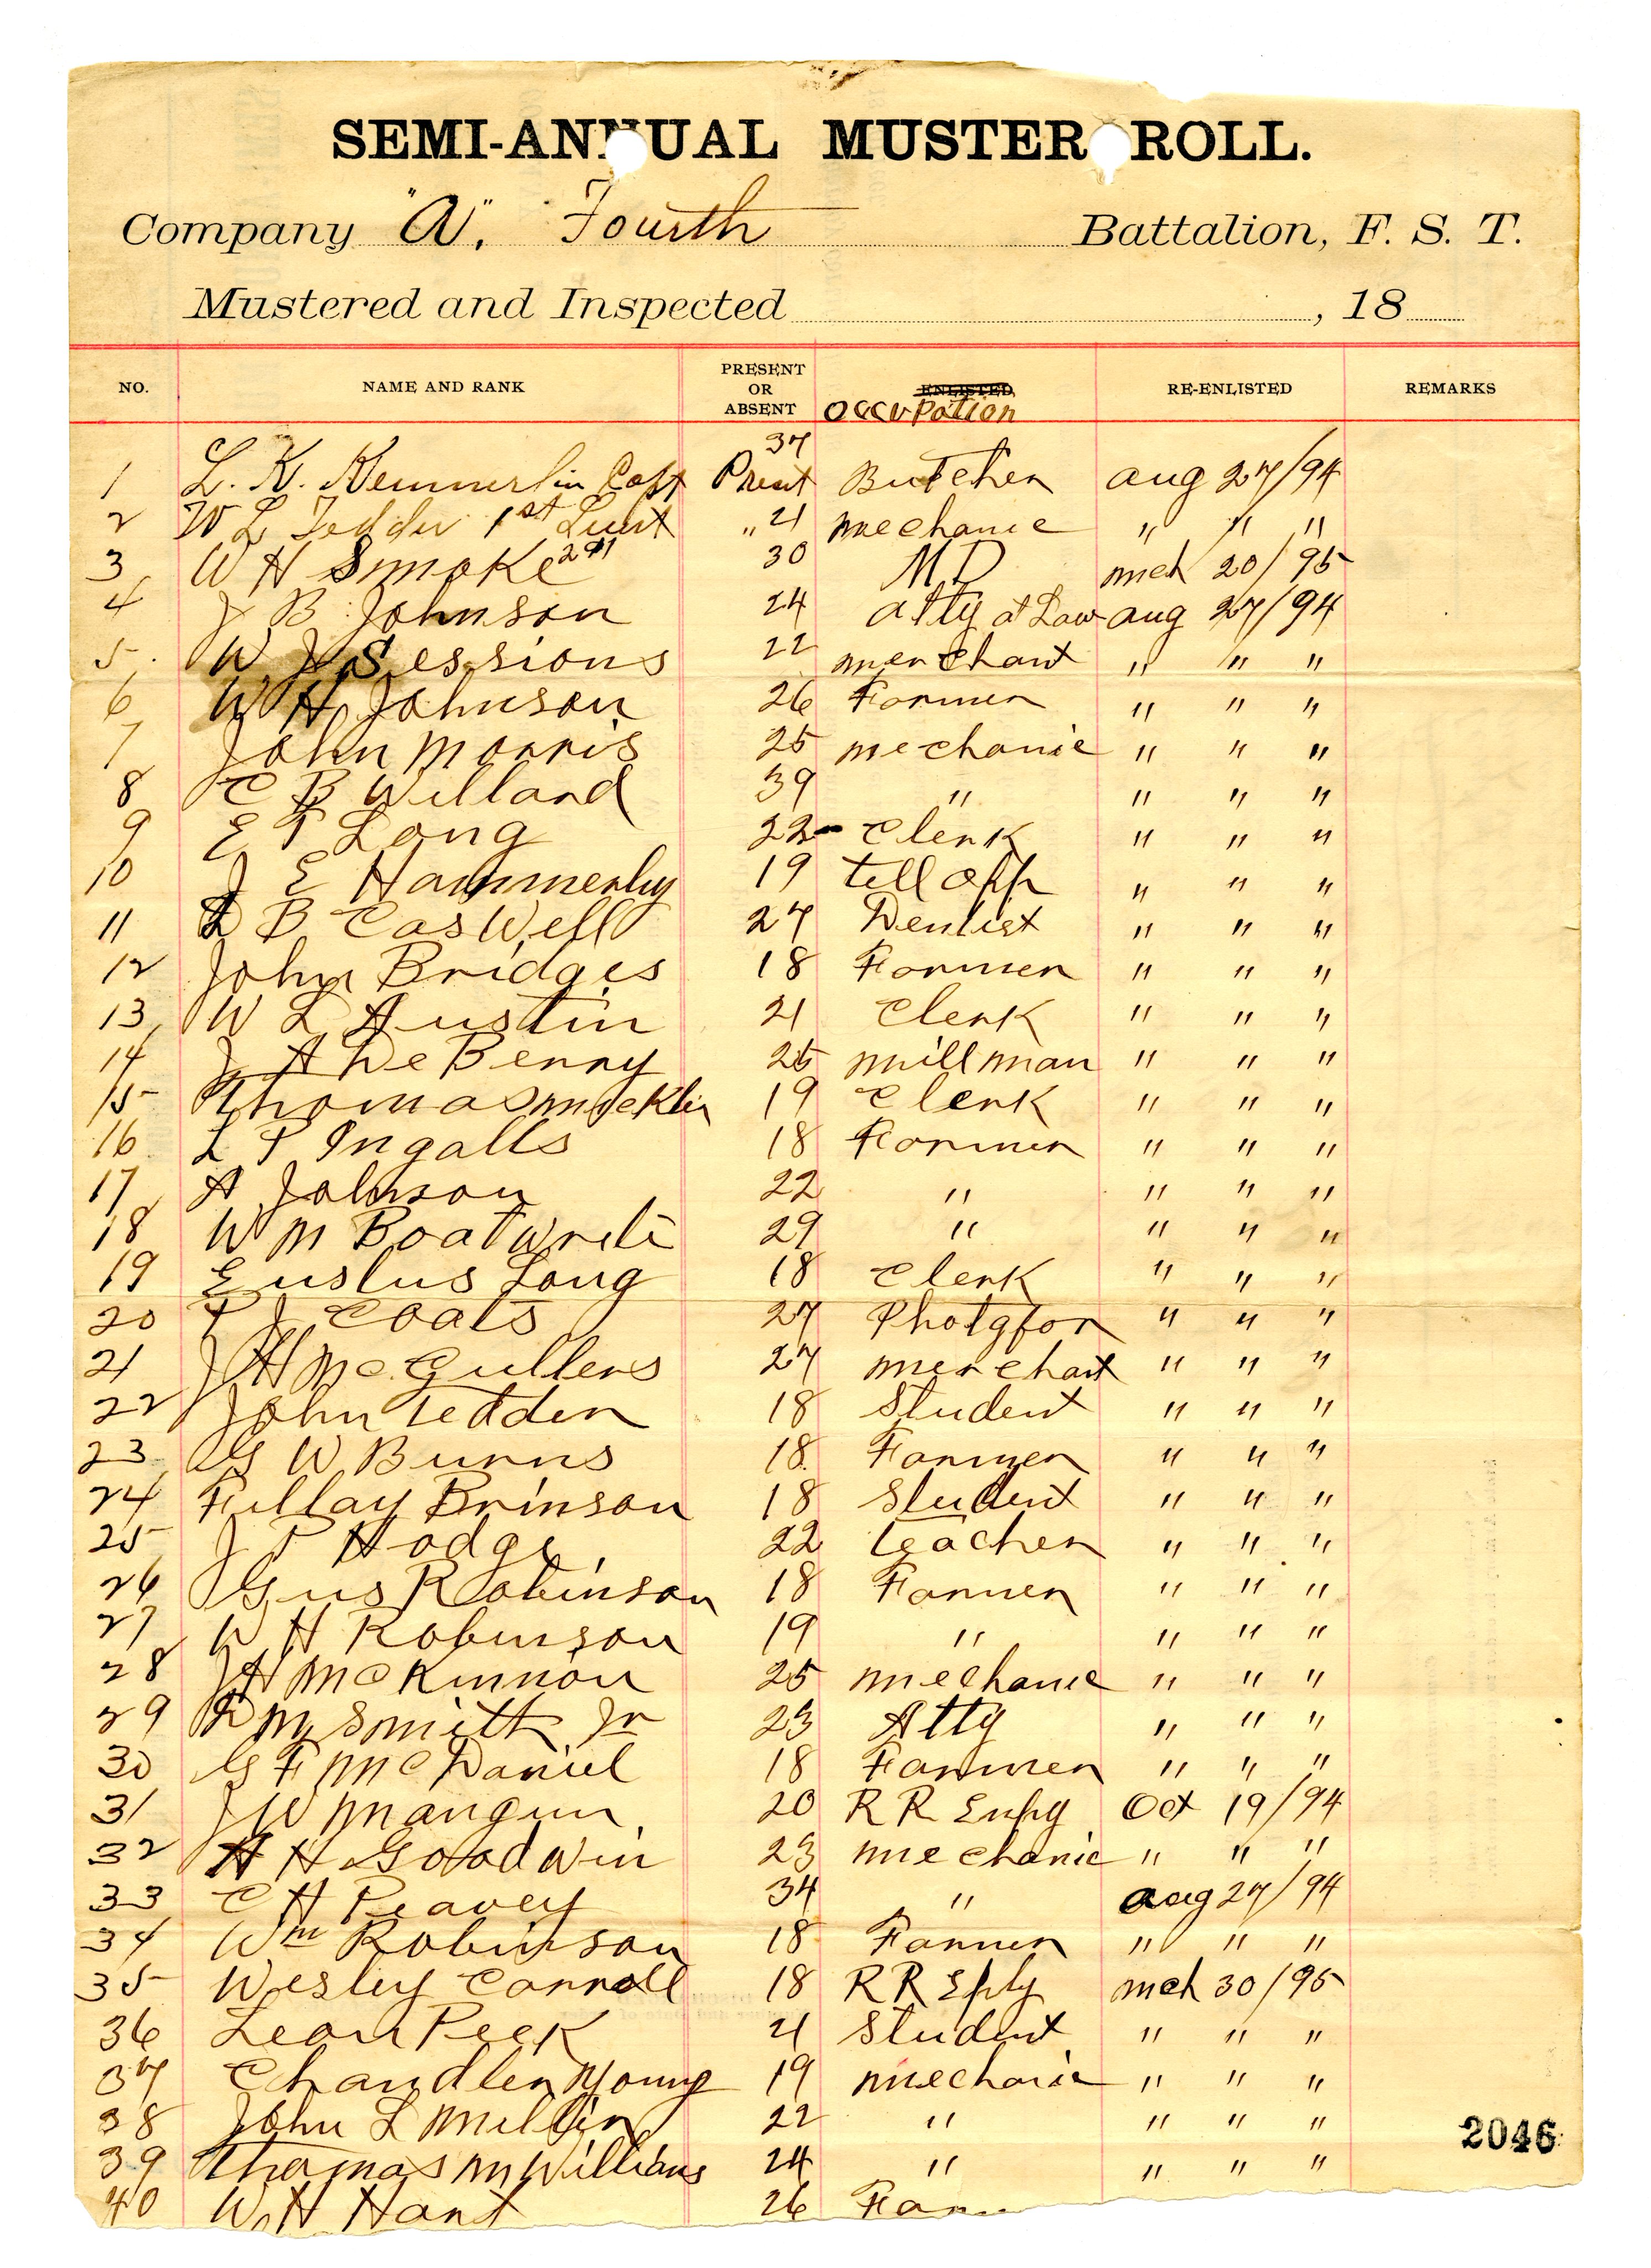 SEMI-ANNUAL MUSTER ROLL.
Company "A", Fourth Battalion, F. S. T.
Mustered and Inspected , 18
NO. NAME AND RANK PRESENT OR ABSENT ENLISTED Occupation RE-ENLISTED REMARKS
37
1 L. K. Kemmerlin Capt Presnt Butcher aug 27/94
2 W L Tedder 1st Lieut " 21 mechanic " " "
3 W H Smoke 2nd 30 M D mch 20/95
4 J B Johnson 24 atty at Law aug 27/94
5 W J Sessions 22 merchant " " "
6 W H Johnson 26 Farmer " " "
7 John Morris 25 mechanic " " "
8 C B Willard 39 " " " "
9 E T Long 22 Clerk " " "
10 J E Hammerly 19 tell opp " " "
11 B Caswell 27 Dentist " " "
12 John Bridges 18 Farmer " " "
13 W L Austin 21 Clerk " " "
14 J A DeBerry 25 mill man " " "
15 Thomas 19 Clerk " " "
16 L P Ingalls 18 Farmer " " "
17 A Johnson 22 " " " "
18 W M Boatwrite 29 " " " "
19 Eustus Long 18 Clerk " " "
20 P J Coats 27 Photgfor " " "
21 J H McGullers 27 merchant " " "
22 John Tedder 18 Student " " "
23 G W Burns 18 Farmer " " "
24 Brinson 18 Student " " "
25 J P Hodge 22 teacher " " "
26 Gus Robinson 18 Farmer " " "
27 W H Robinson 19 " " " "
28 J H McKinnon 25 mechanic " " "
29 R M Smith Jr 23 Atty " " "
30 G F McDaniel 18 Farmer " " "
31 J W Mangum 20 R R Empy Oct 19/94
32 H H Goodwin 23 mechanic " " "
33 C H Peavey 34 " aug 27/94
34 Wm Robinson 18 Farmer " " "
35 Wesley Carroll 18 R R Eply mch 30/95
36 Leon Peek 21 Student " " "
37 Chandler Young 19 mechanic " " "
38 John L Miller 22 " " " "
39 Thomas M Williams 24 " " " "
40 W H Hart 26 Farm
2046